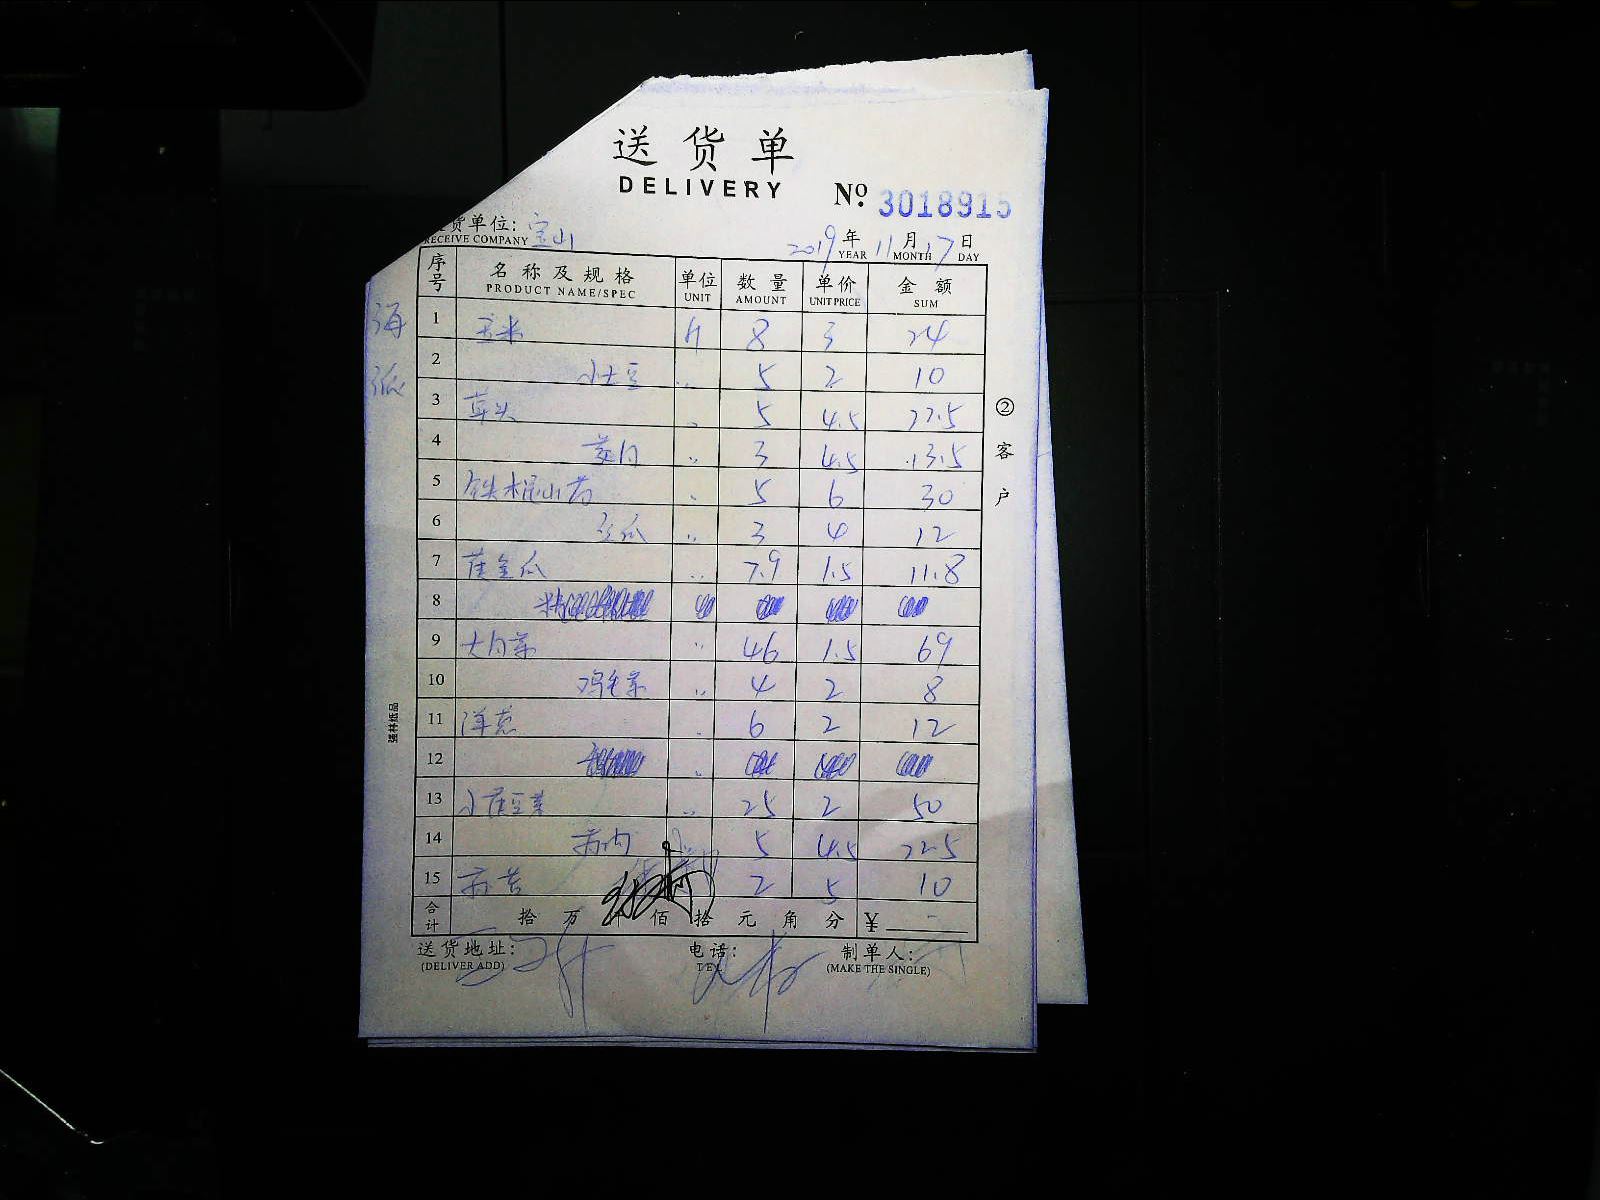 送货单
DELIVERY
№ 3018915
货单位: 宝山
RECEIVE COMPANY
2019年11月17日
YEAR MONTH DAY
序号 名称及规格 单位 数量 单价 金额
PRODUCT NAME/SPEC UNIT AMOUNT UNIT PRICE SUM
海
1 玉米 斤 8 3 24
2 小土豆 〃 5 2 10
3 草头 〃 5 4.5 22.5
② 客户
4 茭白 〃 3 4.5 13.5
5 铁棍山药 〃 5 6 30
6 瓜 〃 3 4 12
7 金瓜 〃 7.9 1.5 11.8
8
9 大白菜 〃 46 1.5 69
10 鸡毛菜 〃 4 2 8
11 洋葱 〃 6 2 12
强林纸品
12
13 小 豆 25 2 50
14 5 4.5 22.5
15 2 5 10
合计 拾 万 佰 拾 元 角 分 ¥
送货地址: 电话: 制单人:
(DELIVER ADD) TEL (MAKE THE SINGLE)